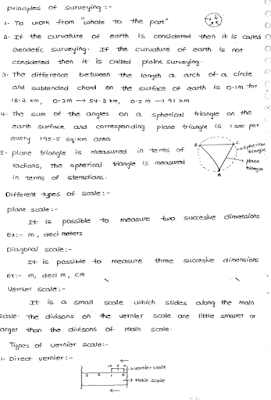 principles of surveying :-
1. To work from "whole to the part"
2. If the curvature of earth is considered then it is called
geodetic surveying. If the curvature of earth is not
considered then it is called plane surveying.
3. The difference between the length a arch of a circle
and subtended chord on the surface of earth is 0.1m for
18.2 km, 0.3m → 54.3 km, 0.5 m → 91 km
4. The sum of the angles on a spherical triangle on the
earth surface and corresponding plane triangle is 1 sec per
every 195.5 sq.km area
5. plane triangle is measured in terms of
radians, The spherical triangle is measured
in terms of steradians.
spherical
triangle
plane
triangle
A
Different types of scale :-
plane scale :-
It is possible to measure two succesive dimensions
Ex:- m, deci meters
Diagonal scale :-
It is possible to measure three succesive dimensions
Ex:- m, deci m, cm
Vernier scale :-
It is a small scale which slides along the main
scale. The divisons on the vernier scale are little smaller or
larger than the divisons of main scale.
Types of vernier scale :-
1. Direct vernier :-
vernier scale
Main scale